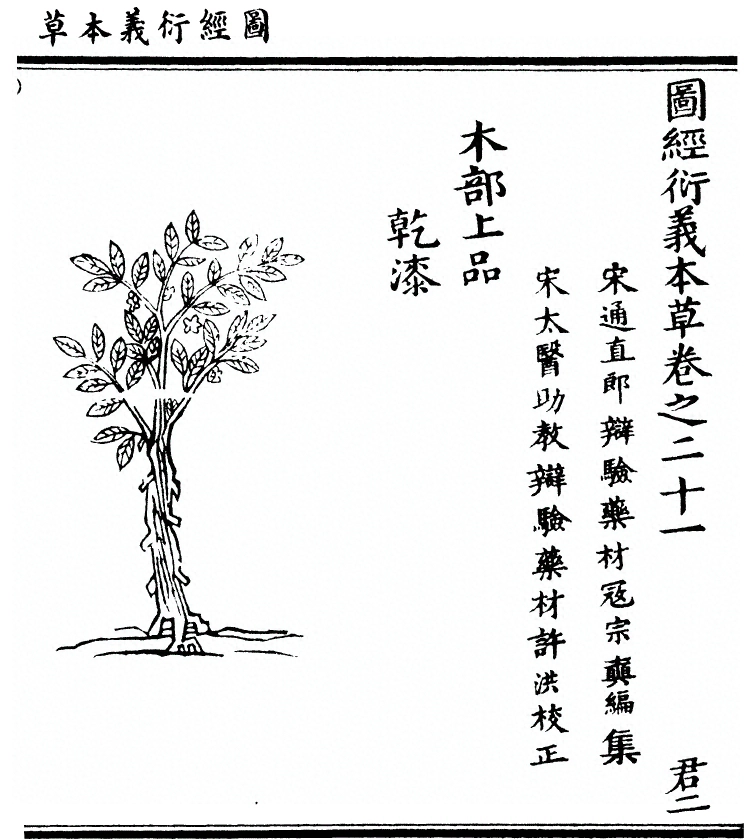 圖經衍義本草
圖經衍義本草卷之二十一
君二
宋通直郎辯驗藥材寇宗奭編集
宋太醫助教辯驗藥材許洪校正
木部上品
乾漆